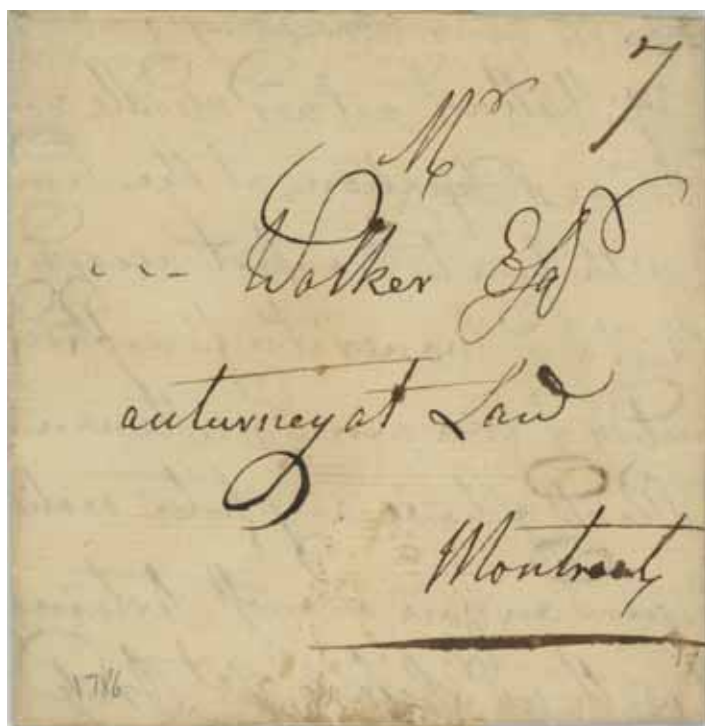 7
Mr
--- Walker Esqr
auturney at Law
Montreal
1786